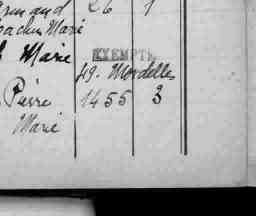 26 1
Marie
Marie
EXEMPT
49. Mordelles
Pierre 1455 3
Marie